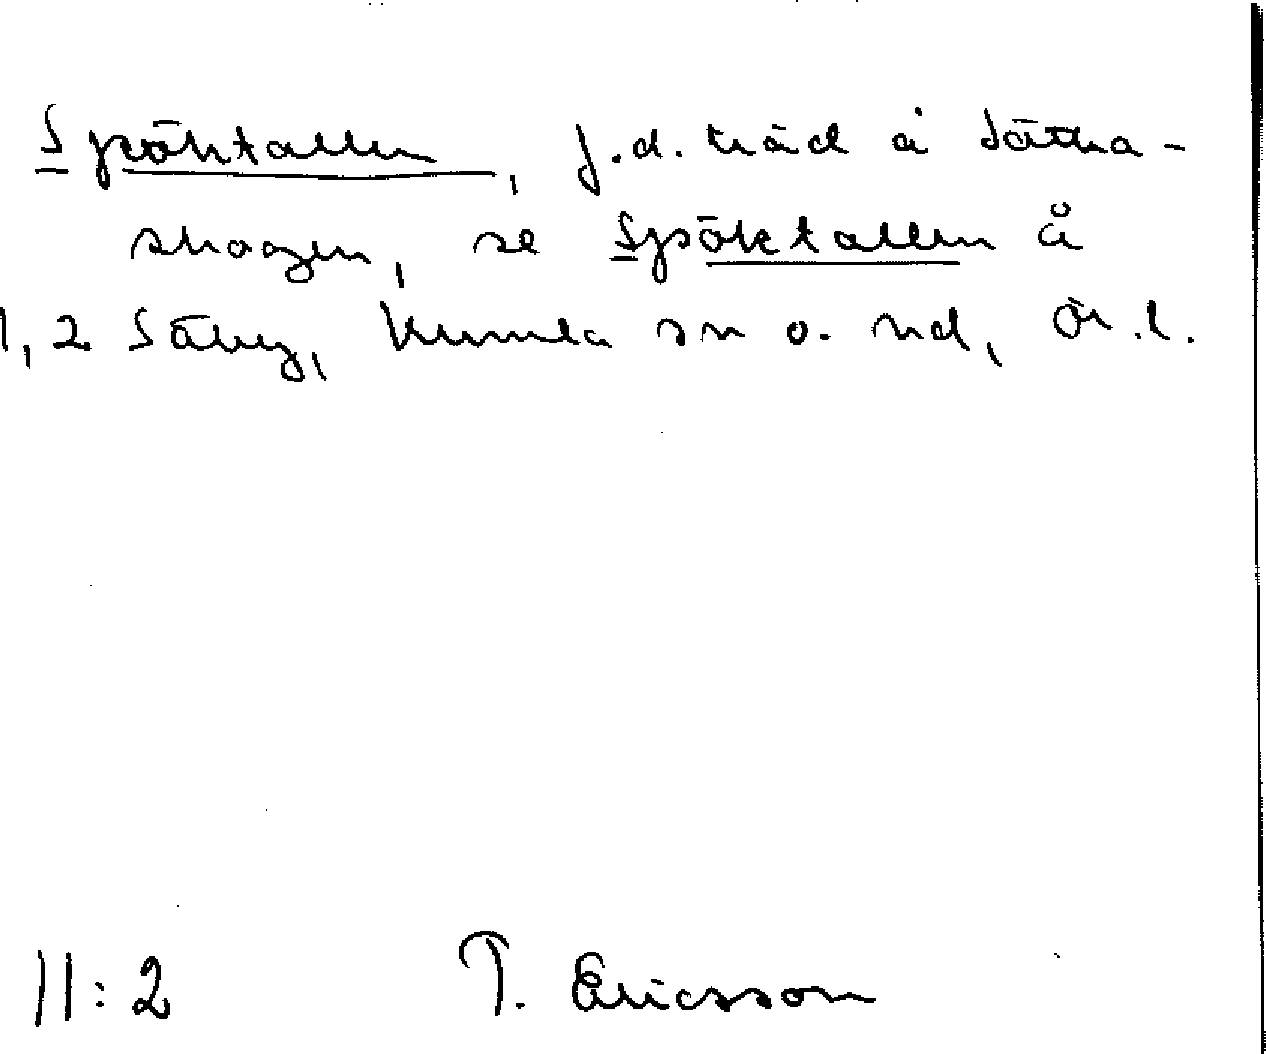 Spöktallen, f.d. träd å Sätra-
skogen, se Spöktallen å
1, 2 Säby, Kumla sn o. hd, Ör. l.
11:2 T. Ericsson